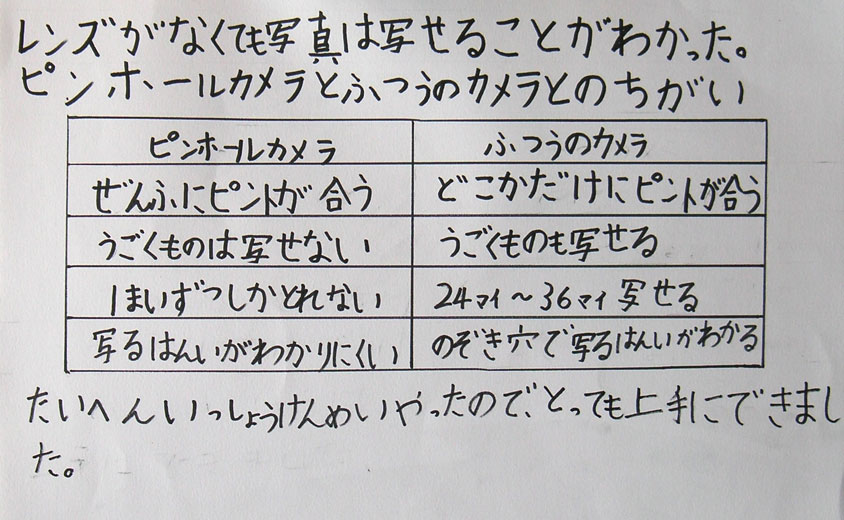 レンズがなくても写真は写せることがわかった。
ピンホールカメラとふつうのカメラとのちがい
ピンホールカメラ ふつうのカメラ
ぜんぶにピントが合う どこかだけにピントが合う
うごくものは写せない うごくものも写せる
1まいずつしかとれない 24マイ～36マイ写せる
写るはんいがわかりにくい のぞき穴で写るはんいがわかる
たいへんいっしょうけんめいやったので、とっても上手にできまし
た。